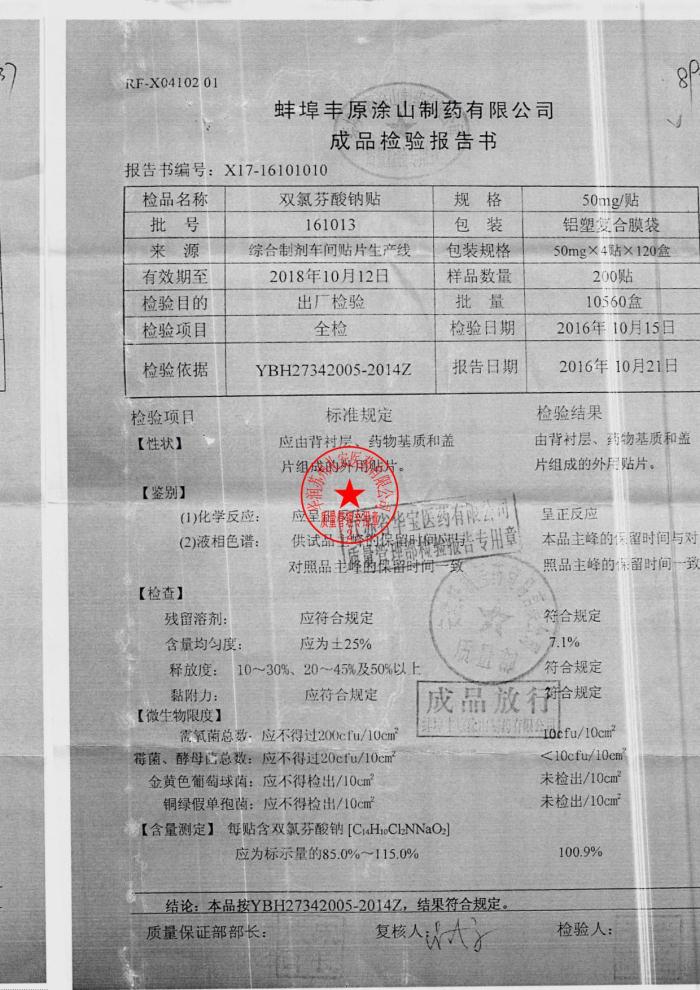 RF-X04102 01
蚌埠丰原涂山制药有限公司
成品检验报告书
报告书编号：X17-16101010
检品名称 双氯芬酸钠贴 规 格 50mg/贴
批 号 161013 包 装 铝塑复合膜袋
来 源 综合制剂车间贴片生产线 包装规格 50mg×4贴×120盒
有效期至 2018年10月12日 样品数量 200贴
检验目的 出厂检验 批 量 10560盒
检验项目 全检 检验日期 2016年10月15日
检验依据 YBH27342005-2014Z 报告日期 2016年10月21日
检验项目 标准规定 检验结果
【性状】 应由背衬层、药物基质和盖 由背衬层、药物基质和盖
片组成的外用贴片。 片组成的外用贴片。
【鉴别】
(1)化学反应： 应呈正反应 呈正反应
(2)液相色谱： 供试品主峰的保留时间应与 本品主峰的保留时间与对
对照品主峰的保留时间一致 照品主峰的保留时间一致
质量管理专用章
华宝医药有限公司
质量管理部检验报告专用章
【检查】
残留溶剂： 应符合规定 符合规定
含量均匀度： 应为±25% 7.1%
质量部
释放度： 10～30%、20～45%及50%以上 符合规定
黏附力： 应符合规定 符合规定
成品放行
【微生物限度】
需氧菌总数： 应不得过200cfu/10cm² 10cfu/10cm²
霉菌、酵母菌总数： 应不得过20cfu/10cm² ＜10cfu/10cm²
金黄色葡萄球菌： 应不得检出/10cm² 未检出/10cm²
铜绿假单孢菌： 应不得检出/10cm² 未检出/10cm²
【含量测定】 每贴含双氯芬酸钠 [C₁₄H₁₀Cl₂NNaO₂]
应为标示量的85.0%～115.0% 100.9%
结论：本品按YBH27342005-2014Z，结果符合规定。
质量保证部部长： 复核人： 检验人：